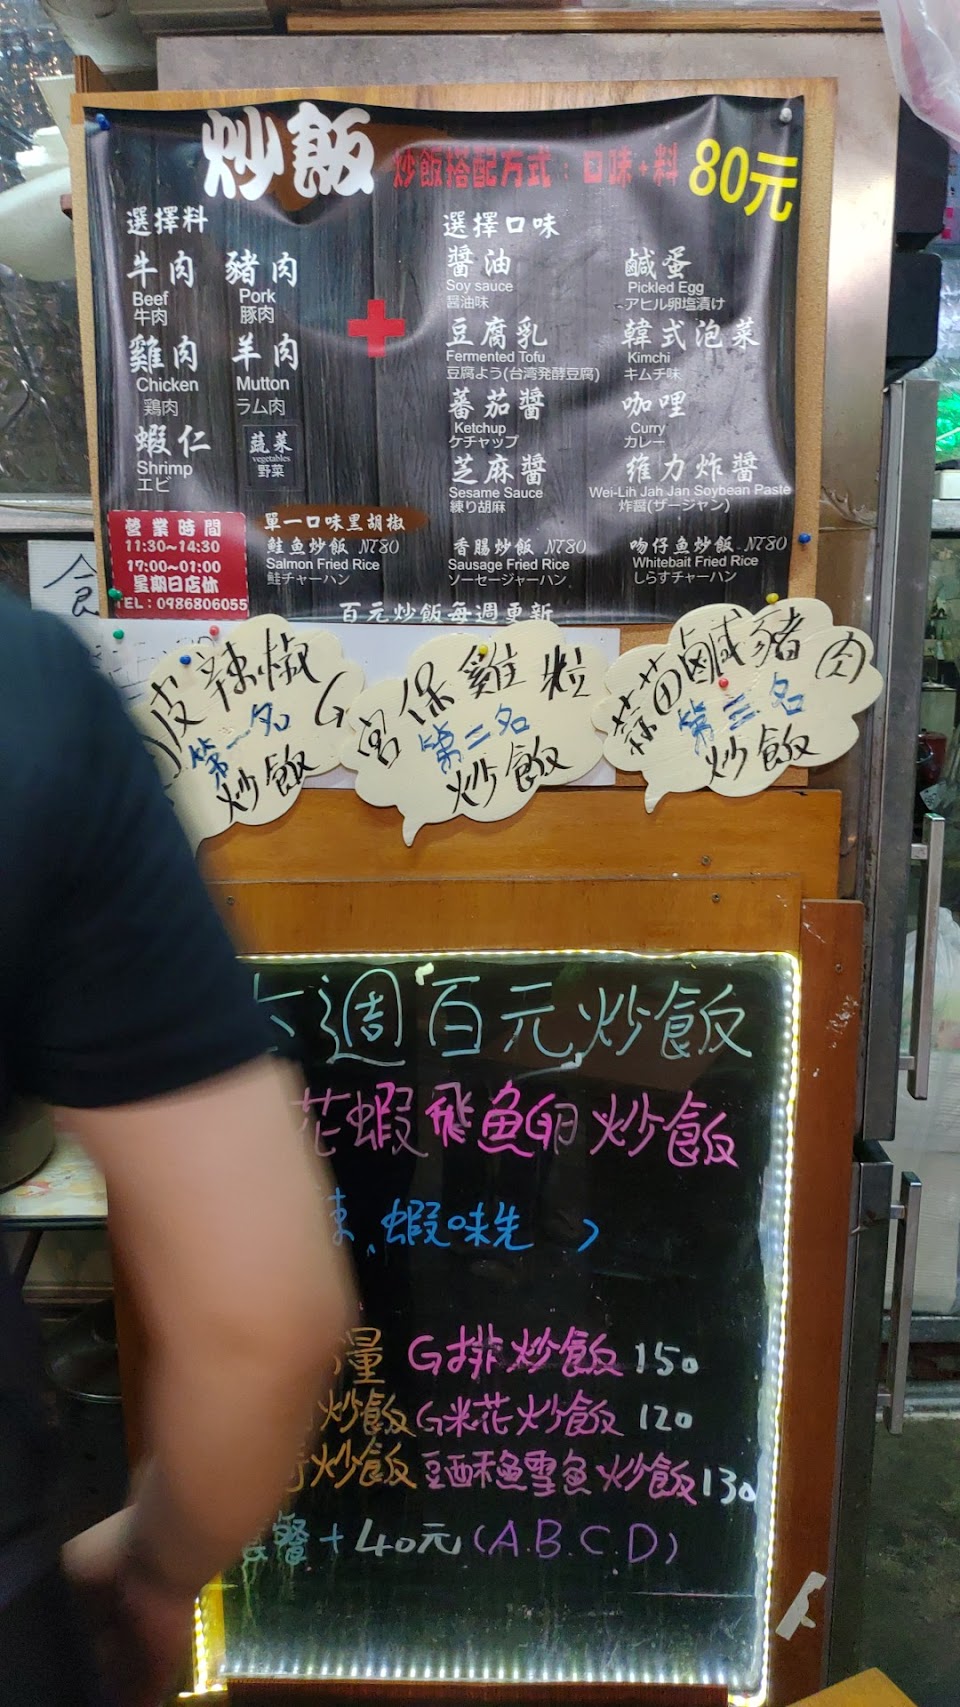 炒飯 炒飯搭配方式:口味+料 80元
選擇料
牛肉 豬肉
Beef Pork
牛肉 豚肉
雞肉 羊肉
Chicken Mutton
鶏肉 ラム肉
蝦仁 蔬菜
Shrimp vegetables
エビ 野菜
選擇口味
醬油 鹹蛋
Soy sauce Pickled Egg
醤油味 アヒル卵塩漬け
豆腐乳 韓式泡菜
Fermented Tofu Kimchi
豆腐よう(台湾発酵豆腐) キムチ味
蕃茄醬 咖哩
Ketchup Curry
ケチャップ カレー
芝麻醬 維力炸醬
Sesame Sauce Wei-Lih Jah Jan Soybean Paste
練り胡麻 炸醤(ザージャン)
營業時間
11:30~14:30
17:00~01:00
星期日店休
TEL:0986806055
單一口味黑胡椒
鮭魚炒飯 NT80 香腸炒飯 NT80 吻仔魚炒飯 NT80
Salmon Fried Rice Sausage Fried Rice Whitebait Fried Rice
鮭チャーハン ソーセージャーハン しらすチャーハン
百元炒飯每週更新
食
皮辣椒G
第一名
炒飯
宮保雞粒
第二名
炒飯
蒜苗鹹豬肉
第三名
炒飯
週百元炒飯
花蝦飛魚卵炒飯
、蝦味先 )
量 G排炒飯 150
炒飯 G米花炒飯 120
炒飯 豆酥鱈魚炒飯 130
餐+40元(A.B.C.D)